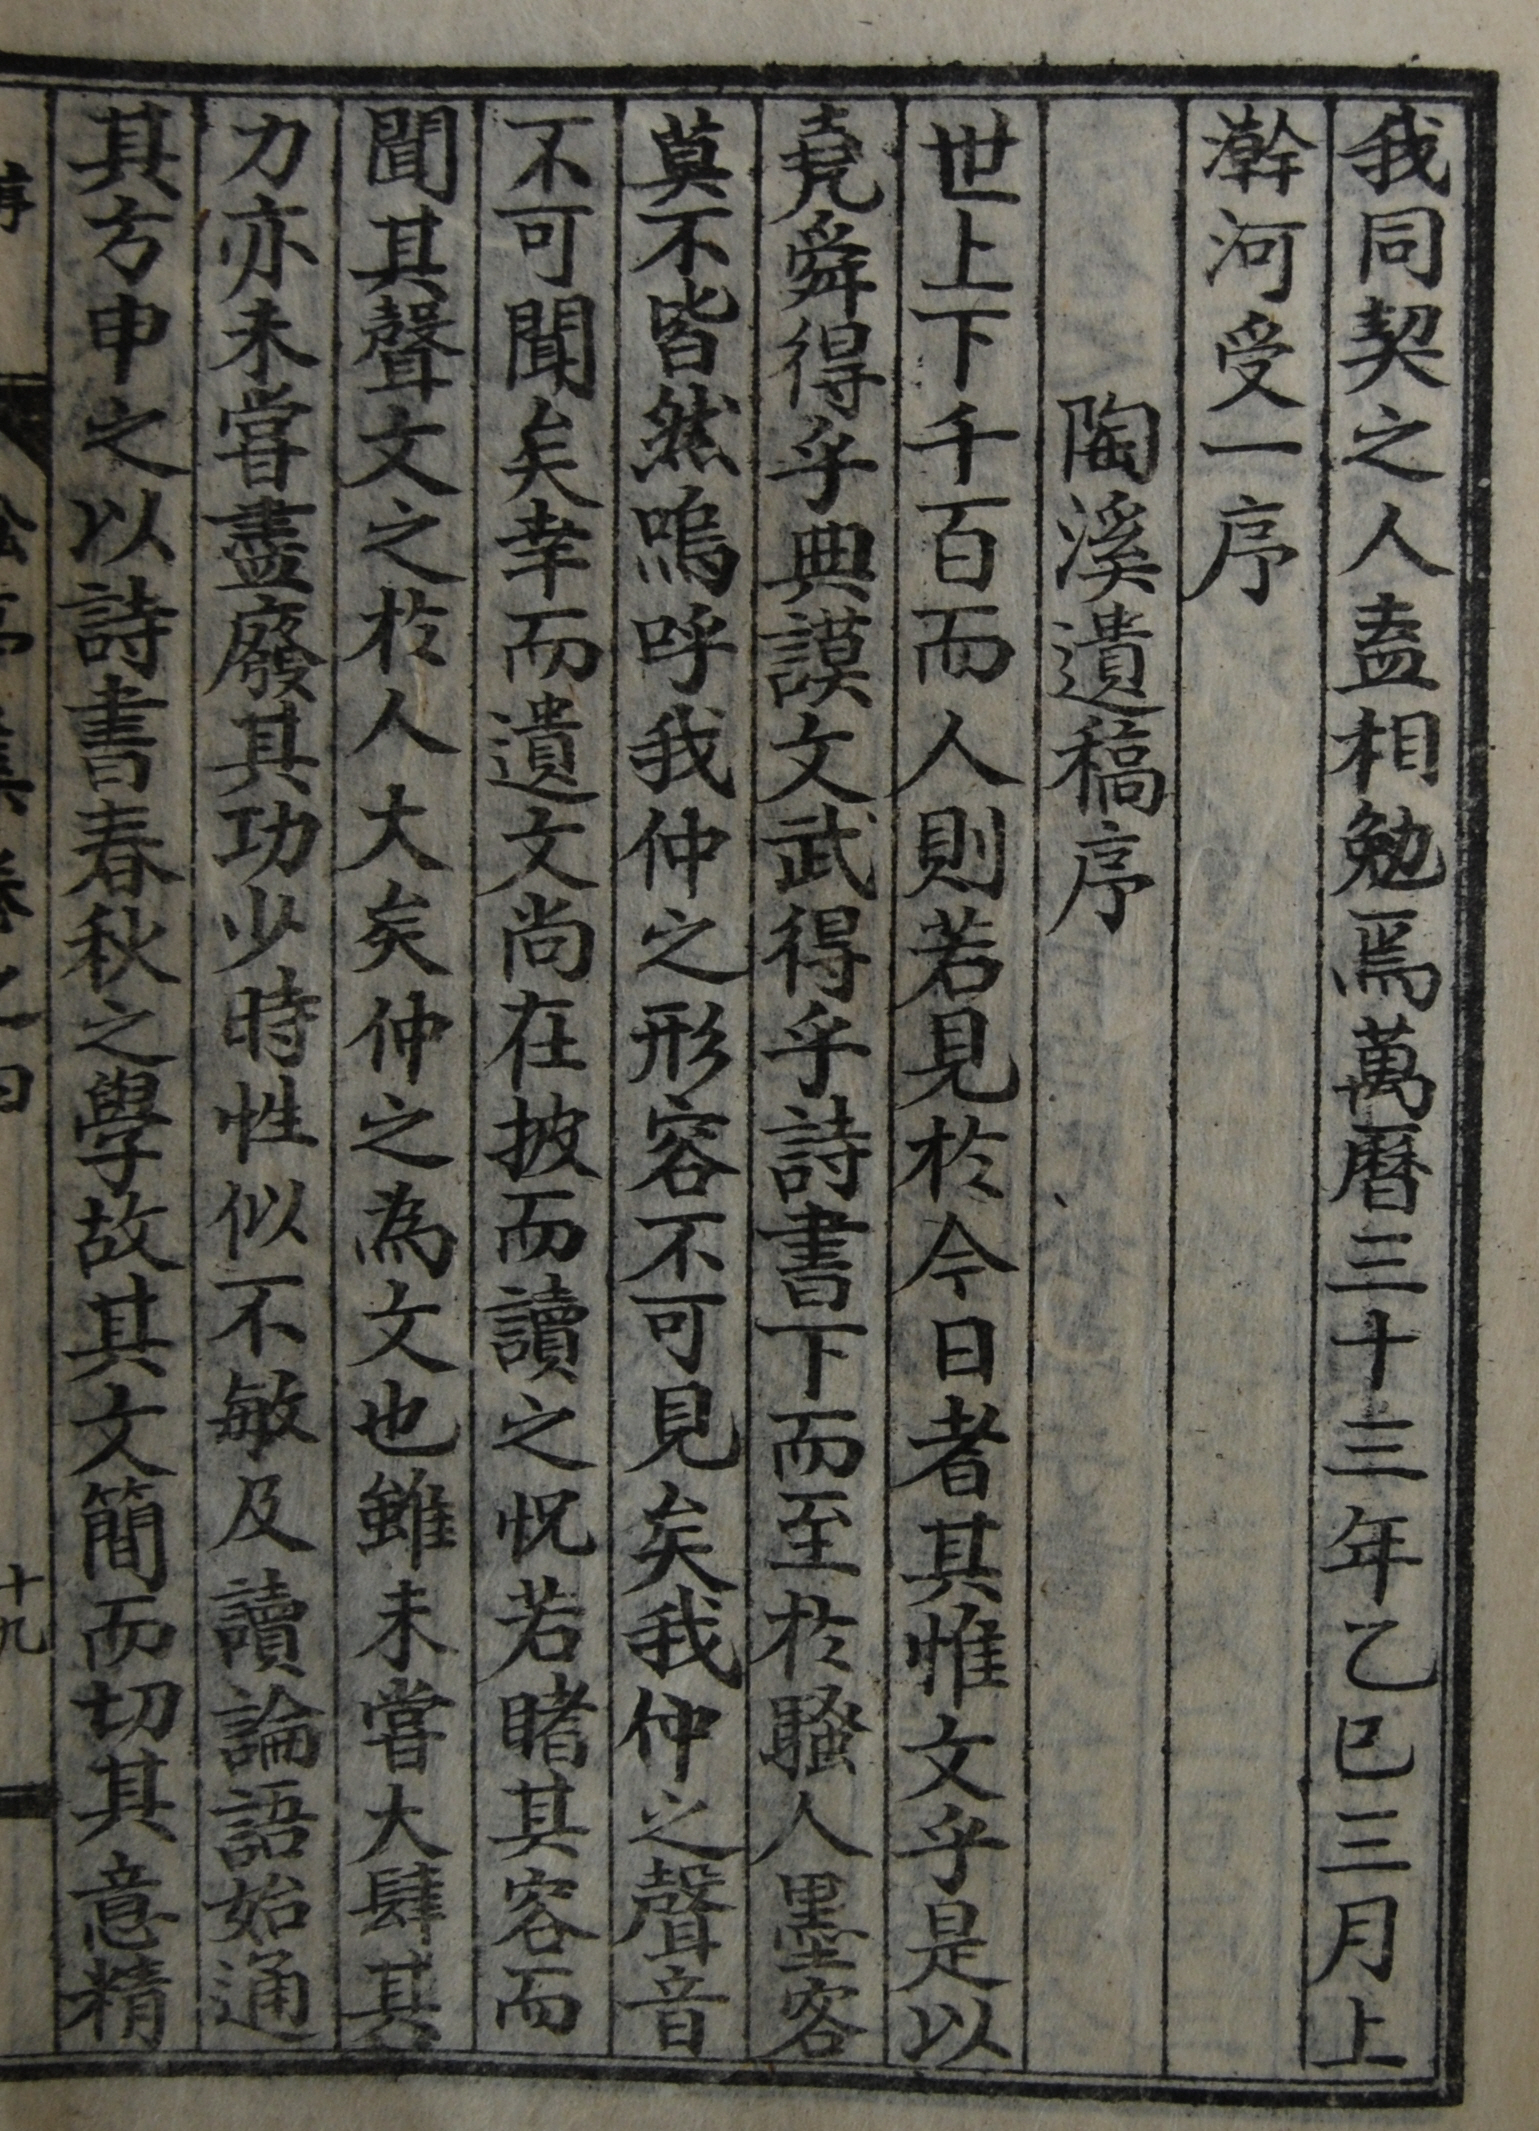 我同契之人盍相勉焉萬曆三十三年乙巳三月上
澣河受一序
陶溪遺稿序
世上下千百而人則若見於今日者其惟文乎是以
堯舜得乎典謨文武得乎詩書下而至於騷人墨客
莫不皆然嗚呼我仲之形容不可見矣我仲之聲音
不可聞矣幸而遺文尚在披而讀之怳若睹其容而
聞其聲文之於人大矣仲之為文也雖未嘗大肆其
力亦未嘗盡廢其功少時性似不敏及讀論語始通
其方申之以詩書春秋之學故其文簡而切其意精
序
松亭集卷之四
十九